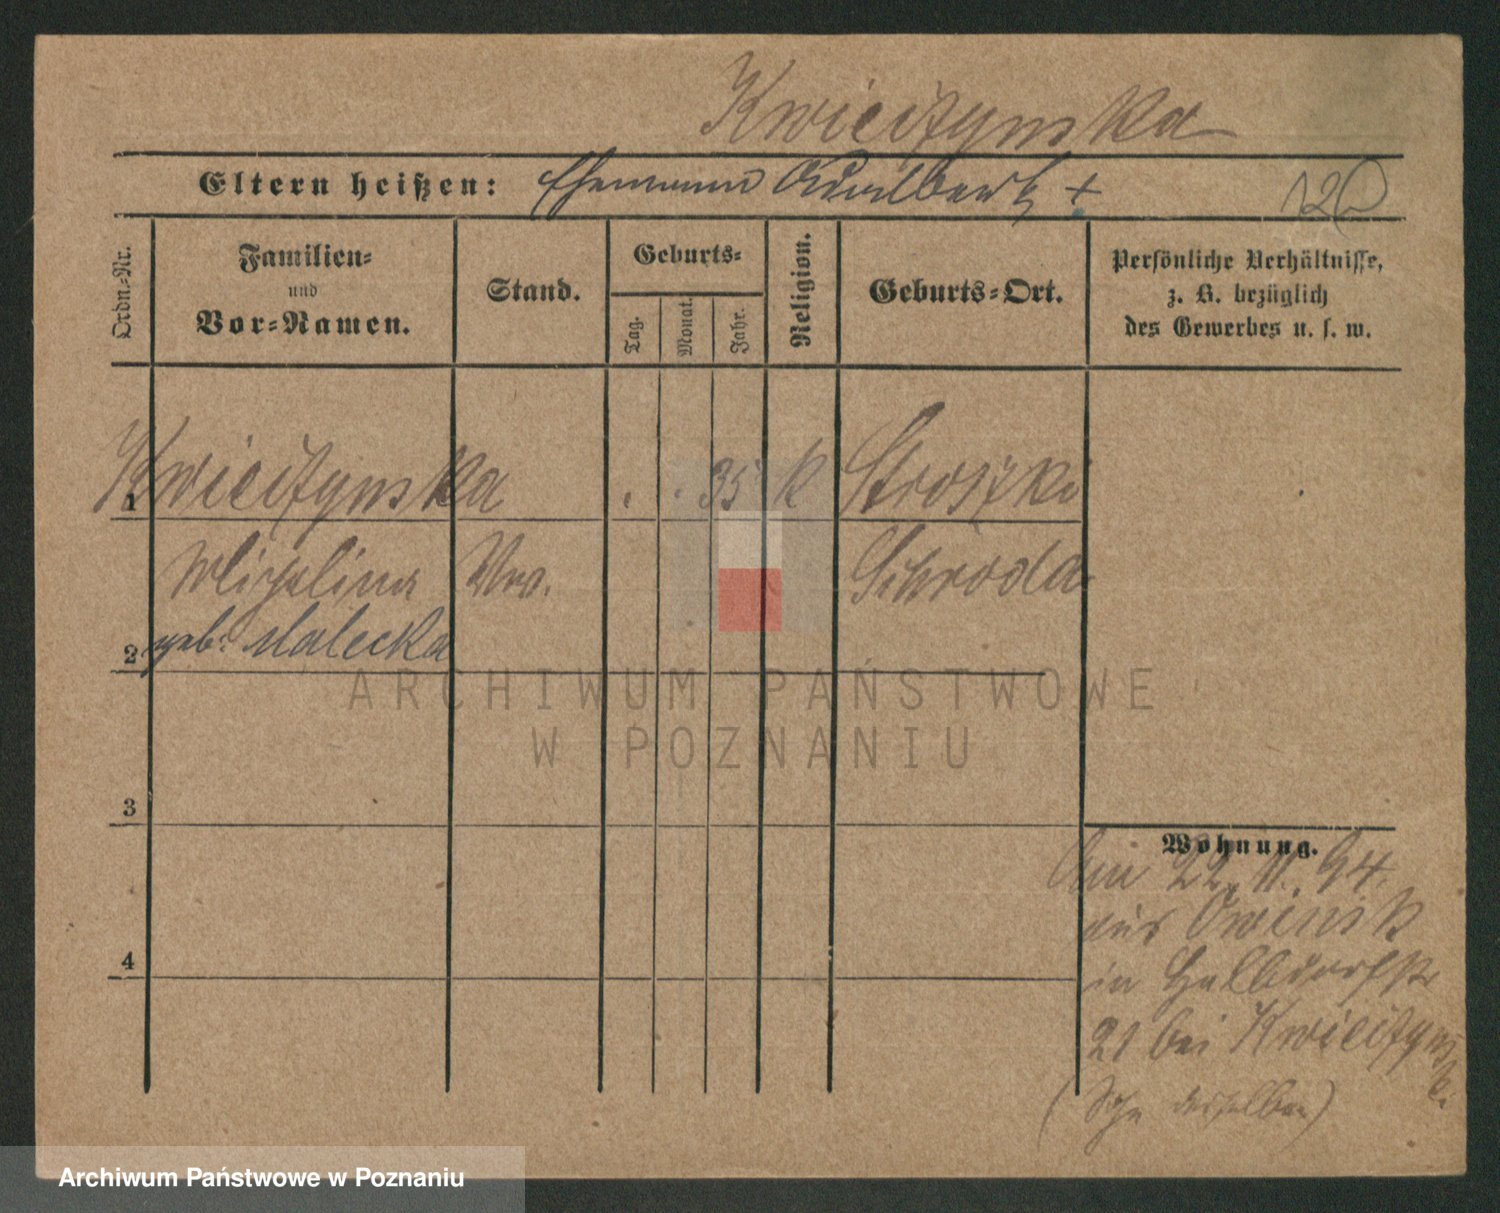 Kwiecizynska
Eltern heißen: Ehemann Adalbert +
120
Ordn.-Nr.
Familien-
und
Vor-Namen.
Stand.
Geburts-
Tag.
Monat.
Jahr.
Religion.
Geburts-Ort.
Persönliche Verhältnisse,
z. B. bezüglich
des Gewerbes u. s. w.
1 Kwiecizynska . . 35 k Stroszki
Wwe. Schroda
2 geb. Malecka
3
4
Wohnung.
Am 22. 11. 94.
aus Owinsk
in Halbdorfstr
21 bei
ARCHIWUM PAŃSTWOWE
W POZNANIU
Archiwum Państwowe w Poznaniu